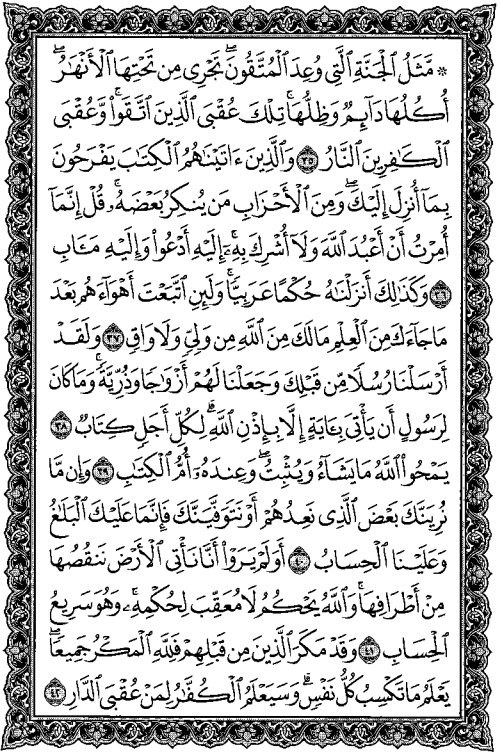 ۞ مَّثَلُ ٱلْجَنَّةِ ٱلَّتِى وُعِدَ ٱلْمُتَّقُونَ ۖ تَجْرِى مِن تَحْتِهَا ٱلْأَنْهَـٰرُ ۖ
أُكُلُهَا دَآئِمٌ وَظِلُّهَا ۚ تِلْكَ عُقْبَى ٱلَّذِينَ ٱتَّقَوا۟ ۖ وَّعُقْبَى
ٱلْكَـٰفِرِينَ ٱلنَّارُ ٣٥ وَٱلَّذِينَ ءَاتَيْنَـٰهُمُ ٱلْكِتَـٰبَ يَفْرَحُونَ
بِمَآ أُنزِلَ إِلَيْكَ ۖ وَمِنَ ٱلْأَحْزَابِ مَن يُنكِرُ بَعْضَهُۥ ۚ قُلْ إِنَّمَآ
أُمِرْتُ أَنْ أَعْبُدَ ٱللَّهَ وَلَآ أُشْرِكَ بِهِۦٓ ۚ إِلَيْهِ أَدْعُوا۟ وَإِلَيْهِ مَـَٔابِ
٣٦ وَكَذَٰلِكَ أَنزَلْنَـٰهُ حُكْمًا عَرَبِيًّا ۚ وَلَئِنِ ٱتَّبَعْتَ أَهْوَآءَهُم بَعْدَ
مَا جَآءَكَ مِنَ ٱلْعِلْمِ مَا لَكَ مِنَ ٱللَّهِ مِن وَلِىٍّ وَلَا وَاقٍ ٣٧ وَلَقَدْ
أَرْسَلْنَا رُسُلًا مِّن قَبْلِكَ وَجَعَلْنَا لَهُمْ أَزْوَٰجًا وَذُرِّيَّةً ۚ وَمَا كَانَ
لِرَسُولٍ أَن يَأْتِىَ بِـَٔايَةٍ إِلَّا بِإِذْنِ ٱللَّهِ ۗ لِكُلِّ أَجَلٍ كِتَابٌ ٣٨
يَمْحُوا۟ ٱللَّهُ مَا يَشَآءُ وَيُثْبِتُ ۖ وَعِندَهُۥٓ أُمُّ ٱلْكِتَـٰبِ ٣٩ وَإِن مَّا
نُرِيَنَّكَ بَعْضَ ٱلَّذِى نَعِدُهُمْ أَوْ نَتَوَفَّيَنَّكَ فَإِنَّمَا عَلَيْكَ ٱلْبَلَـٰغُ
وَعَلَيْنَا ٱلْحِسَابُ ٤٠ أَوَلَمْ يَرَوْا۟ أَنَّا نَأْتِى ٱلْأَرْضَ نَنقُصُهَا
مِنْ أَطْرَافِهَا ۚ وَٱللَّهُ يَحْكُمُ لَا مُعَقِّبَ لِحُكْمِهِۦ ۚ وَهُوَ سَرِيعُ
ٱلْحِسَابِ ٤١ وَقَدْ مَكَرَ ٱلَّذِينَ مِن قَبْلِهِمْ فَلِلَّهِ ٱلْمَكْرُ جَمِيعًا ۖ
يَعْلَمُ مَا تَكْسِبُ كُلُّ نَفْسٍ ۗ وَسَيَعْلَمُ ٱلْكُفَّـٰرُ لِمَنْ عُقْبَى ٱلدَّارِ ٤٢